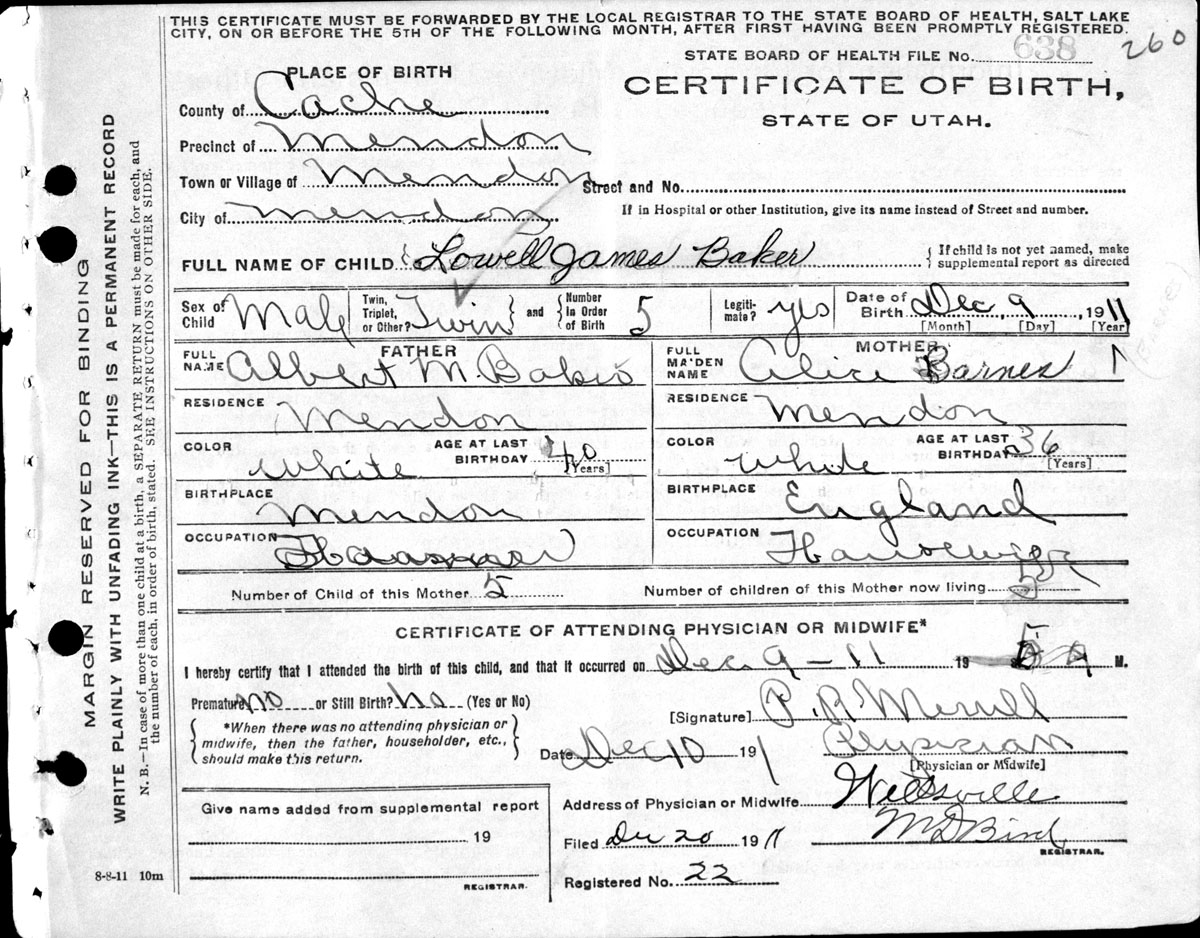 THIS CERTIFICATE MUST BE FORWARDED BY THE LOCAL REGISTRAR TO THE STATE BOARD OF HEALTH, SALT LAKE
CITY, ON OR BEFORE THE 5TH OF THE FOLLOWING MONTH, AFTER FIRST HAVING BEEN PROMPTLY REGISTERED.
STATE BOARD OF HEALTH FILE No. 638 260
CERTIFICATE OF BIRTH,
STATE OF UTAH.
PLACE OF BIRTH
County of Cache
Precinct of Mendon
Town or Village of Mendon Street and No.
City of Mendon If in Hospital or other Institution, give its name instead of Street and number.
FULL NAME OF CHILD Lowell James Baker { If child is not yet named, make
supplemental report as directed
Sex of Child Male Twin, Triplet, or Other? Twin and Number In Order of Birth 5 Legiti-mate? yes Date of Birth Dec 9 1911
[Month] [Day] [Year]
FATHER MOTHER
FULL NAME Albert M. Baker FULL MAIDEN NAME Alice Barnes
RESIDENCE Mendon RESIDENCE Mendon
COLOR White AGE AT LAST BIRTHDAY 40 [Years] COLOR White AGE AT LAST BIRTHDAY 36 [Years]
BIRTHPLACE Mendon BIRTHPLACE England
OCCUPATION OCCUPATION
Number of Child of this Mother 5 Number of children of this Mother now living 5
CERTIFICATE OF ATTENDING PHYSICIAN OR MIDWIFE*
I hereby certify that I attended the birth of this child, and that it occurred on Dec. 9 - 11 19 M.
Premature no or Still Birth? No (Yes or No)
[Signature] P. R. Merrill
*When there was no attending physician or
midwife, then the father, householder, etc.,
should make this return.
Date Dec 10 191 Physician
[Physician or Midwife]
Give name added from supplemental report
19
REGISTRAR.
Address of Physician or Midwife Wellsville
Filed Dec 20 1911 M D Bird
REGISTRAR.
Registered No. 22
8-8-11 10m
MARGIN RESERVED FOR BINDING
WRITE PLAINLY WITH UNFADING INK—THIS IS A PERMANENT RECORD
N. B.—In case of more than one child at a birth, a SEPARATE RETURN must be made for each, and
the number of each, in order of birth, stated. SEE INSTRUCTIONS ON OTHER SIDE.